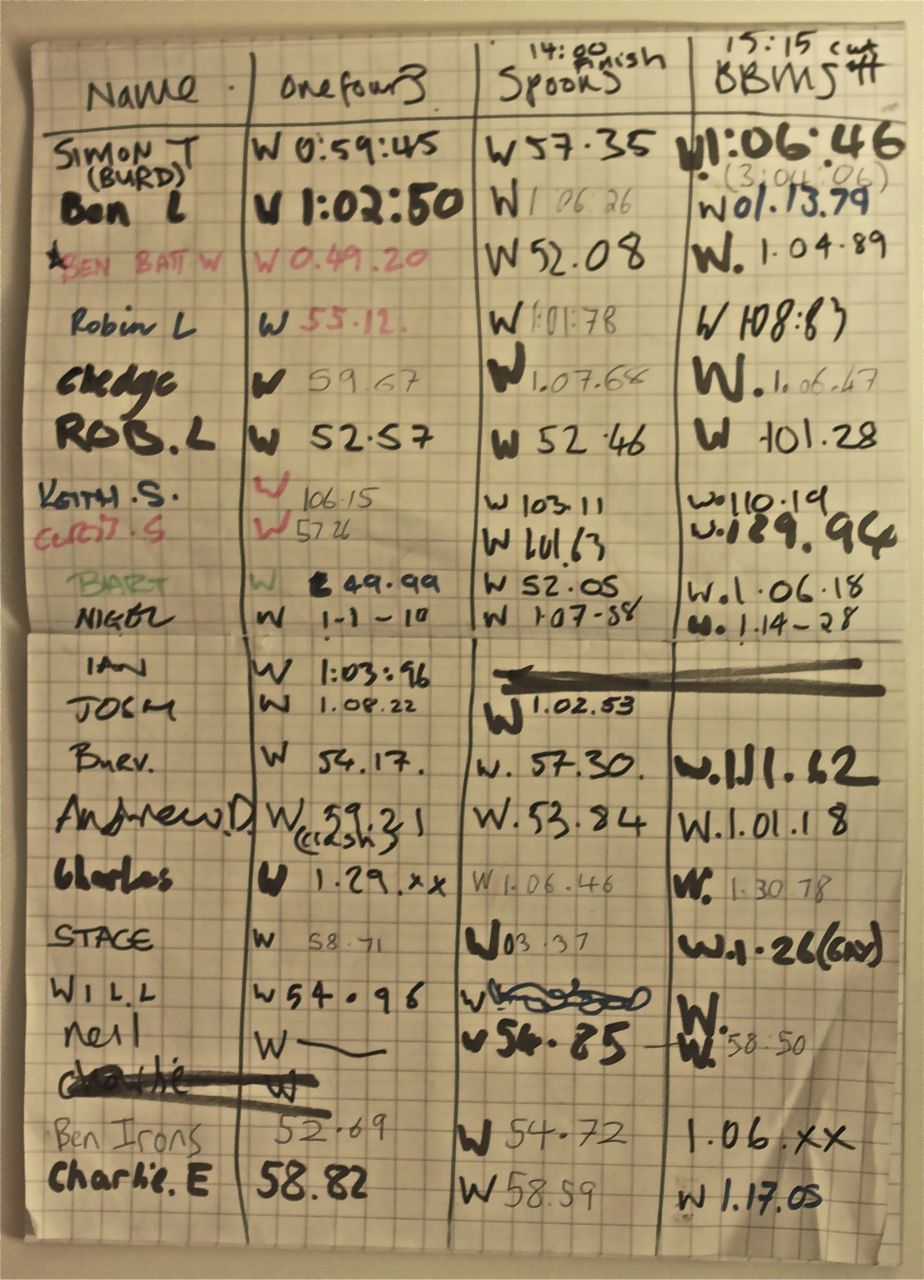 14:00 finish 15:15 cut off
Name onefour3 Spooks BBMs
SIMON T W 0:59:45 W 57.35 W1:06:46
(BURD) (3:04:06)
Ben L W 1:02:50 W 1 06.26 W 01.13.79
BEN BATT W W 0.49.20 W 52.08 W. 1.04.89
Robin L W 55.12. W 1:01:78 W 108:83
Chedge W 59.67 W 1.07.68 W. 1.06.47
ROB.L W 52.57 W 52.46 W 101.28
KEITH.S. W 106.15 W 103.11 W.110.19
CURTIS.S W 57 26 W 101.63 W.129.94
BART W 49.99 W 52.05 W.1.06.18
NIGEL W 1-1-10 W 1:07-58 W. 1.14-28
IAN W 1:03:96
JOSH W 1.08.22 W 1.02.53
Burv. W 54.17. W. 57.30. W.111.62
Andrew.D. W. 59.21 W.53.84 W.1.01.18
(crash)
Charles W 1.29.xx W 1.06.46 W. 1.30.78
STACE W 58.71 W 03.37 W.1.26
WILL W 54.96 W W.
Neil W — W 54.85 W. 58:50
Charlie W
Ben Irons 52.69 W 54.72 1.06.xx
Charlie.E 58.82 W 58.59 W 1.17.05